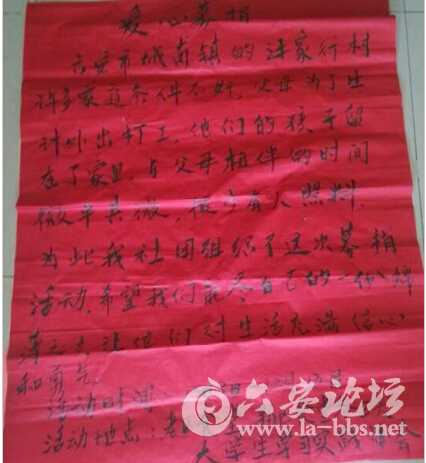 爱心募捐
六安市城南镇的汪家行村
许多家庭条件不好,父母为了生
计外出打工,他们的孩子留
在了家里,与父母相伴的时间
微乎其微,很少有人照料,
为此我社团组织了这次募捐
活动,希望我们能尽自己的一份绵
薄之力让他们对生活充满信心
和勇气。
活动时间:
活动地点:
大学生
六安论坛
www.la-bbs.net